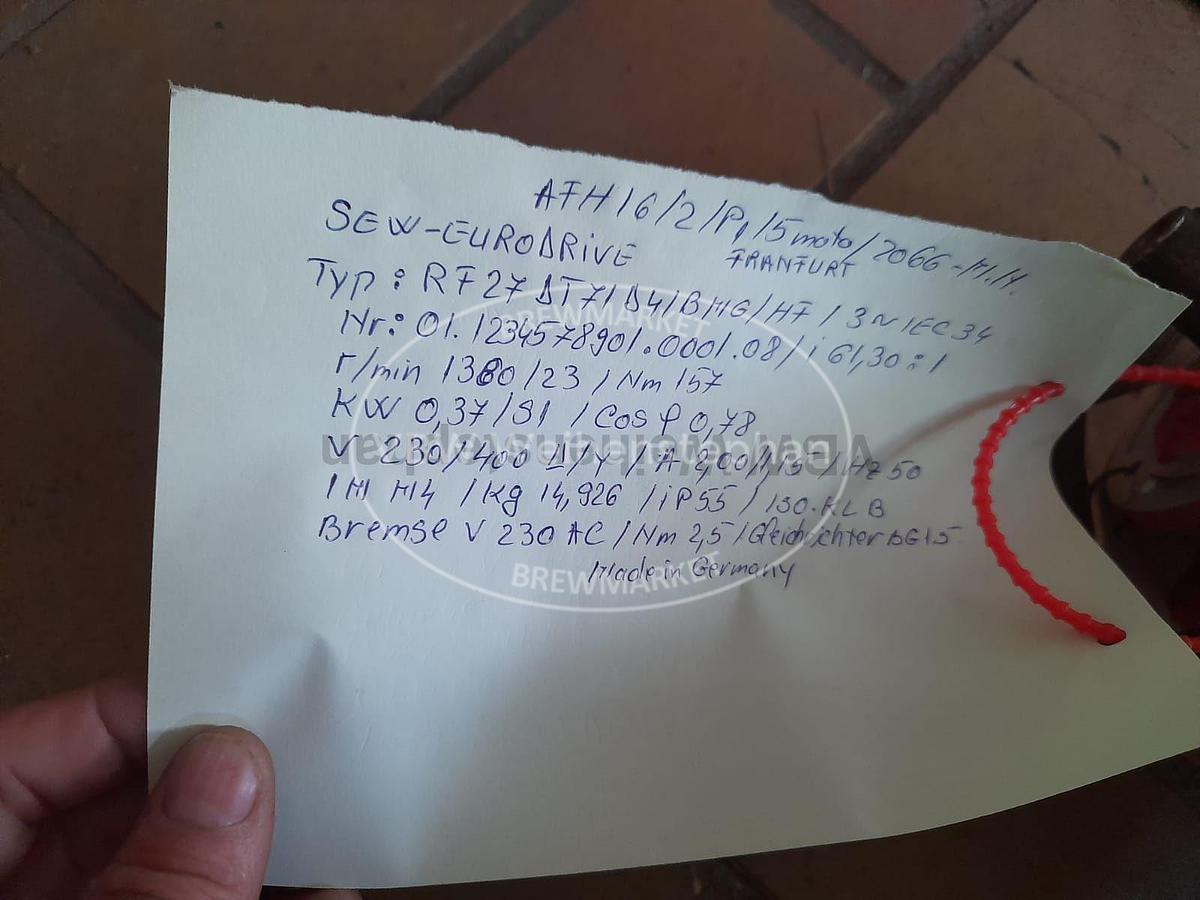 AFH 16/2/P1/5 moto/2066-M.M.
SEW-EURODRIVE FRANFURT
Typ: RF27 DT71D4/BMG/HF / 3~IEC34
Nr: 01.1234578901.0001.08/i 61,30:1
r/min 1380/23 / Nm 157
KW 0,37/S1 / Cos φ 0,78
V 230/400 Δ/Y / A 2,00/1,15 / Hz 50
IM M4 / Kg 14,926 / iP55 / ISO.KL B
Bremse V 230 AC / Nm 2,5 / Gleichrichter BG1.5
Made in Germany
BREWMARKET
BREWMARKET